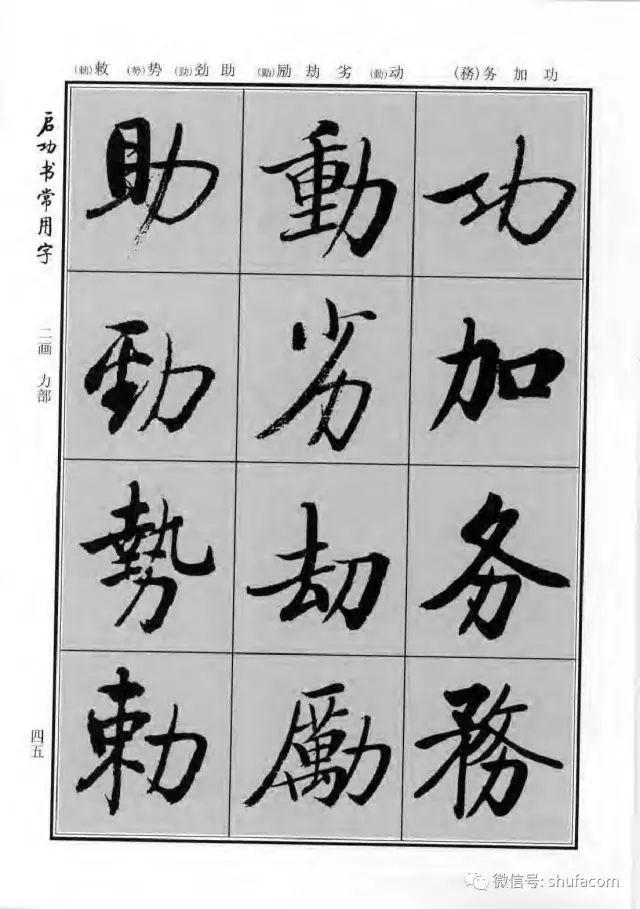 功加务(務)
动(動)劣劫励(勵)
助劲(勁)势(勢)敕(勅)
功
加
务
務
動
劣
劫
勵
助
勁
勢
勅
启功书常用字
二画 力部
四五
微信号: shufacom